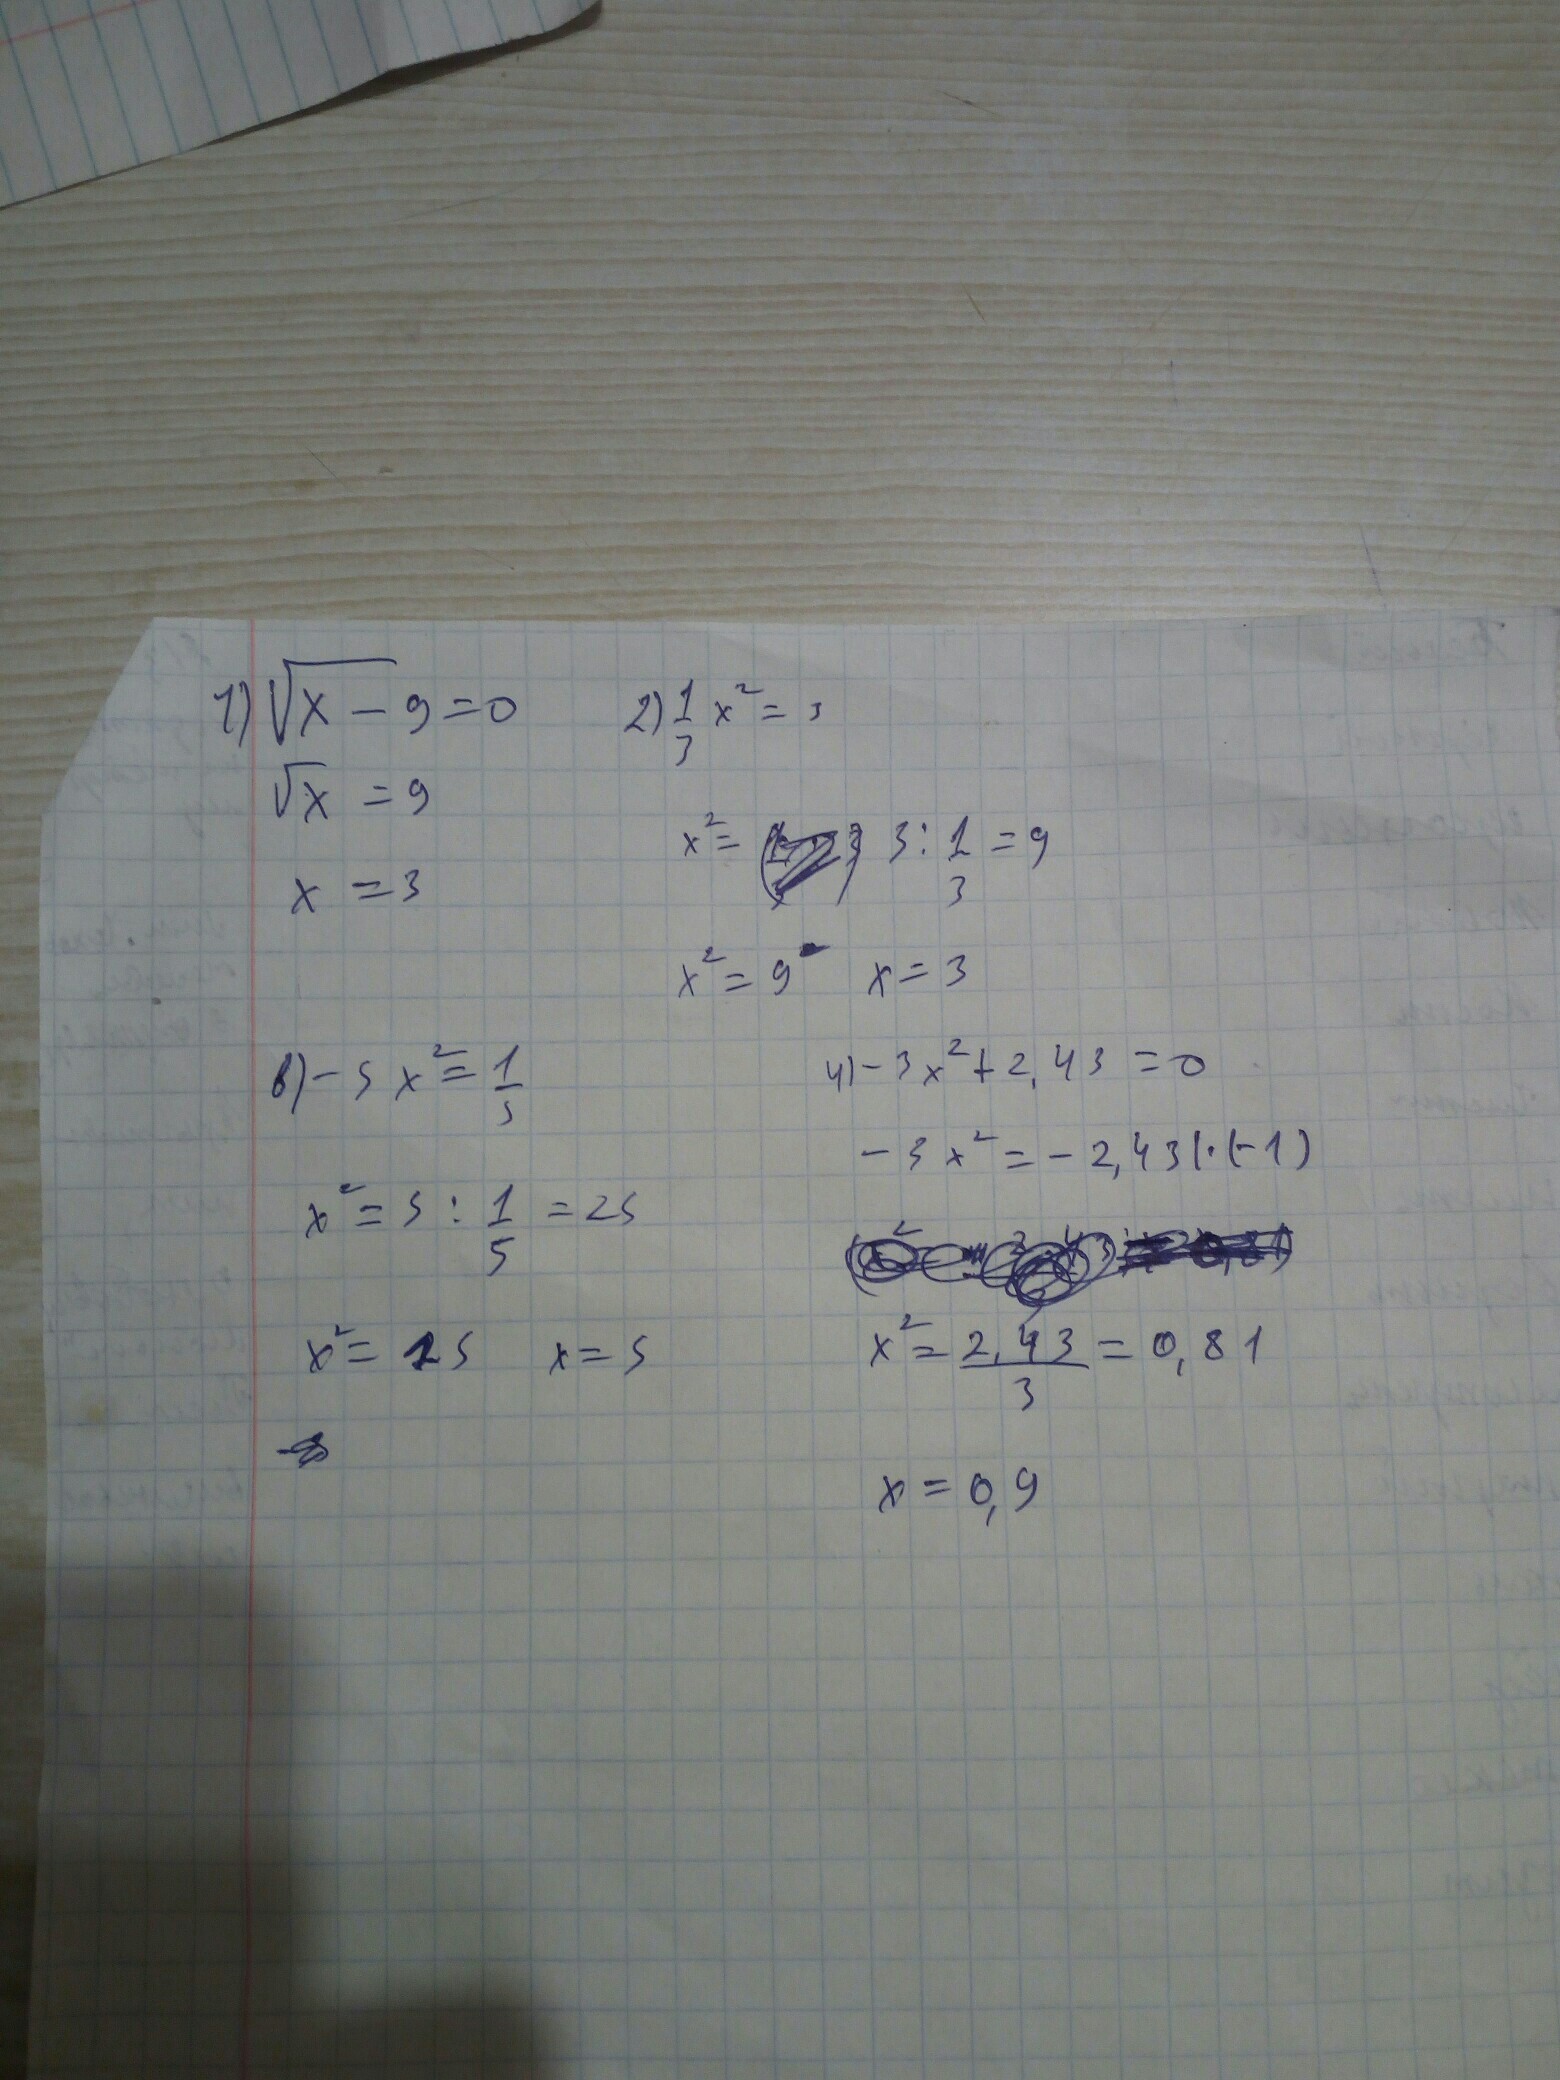 1) √x - 9 = 0
√x = 9
x = 3
2) 1/3 x² = 3
x² = 3 : 1/3 = 9
x² = 9 x = 3
в) - 5 x² = 1/5
x² = 5 : 1/5 = 25
x² = 25 x = 5
4) - 3x² + 2,43 = 0
- 3x² = - 2,43 | · (-1)
x² = 2,43/3 = 0,81
x = 0,9